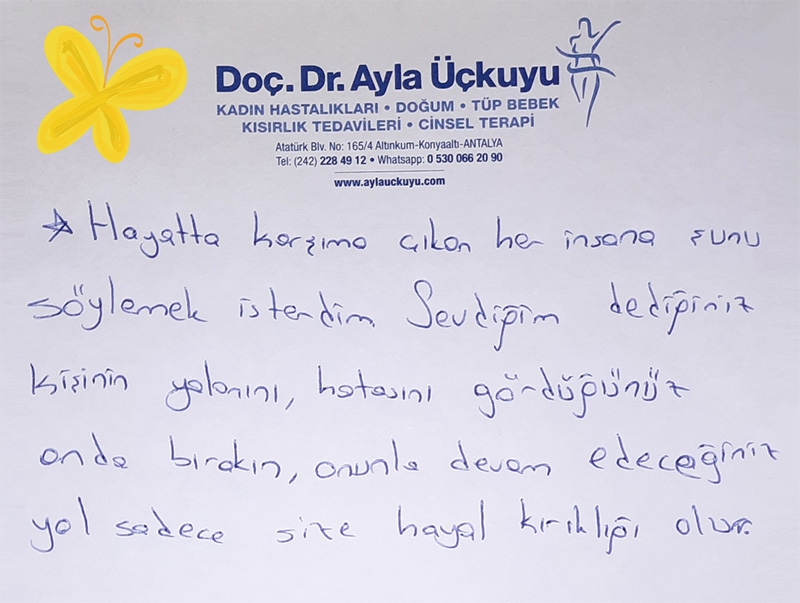 Doç. Dr. Ayla Üçkuyu
KADIN HASTALIKLARI • DOĞUM • TÜP BEBEK
KISIRLIK TEDAVİLERİ • CİNSEL TERAPİ
Atatürk Blv. No: 165/4 Altınkum-Konyaaltı-ANTALYA
Tel: (242) 228 49 12 • Whatsapp: 0 530 066 20 90
www.aylauckuyu.com
Hayatta karşıma çıkan her insana şunu
söylemek isterdim. Sevdiğim dediğiniz
kişinin yalanını, hatasını gördüğünüz
anda bırakın, onunla devam edeceğiniz
yol sadece size hayal kırıklığı olur.